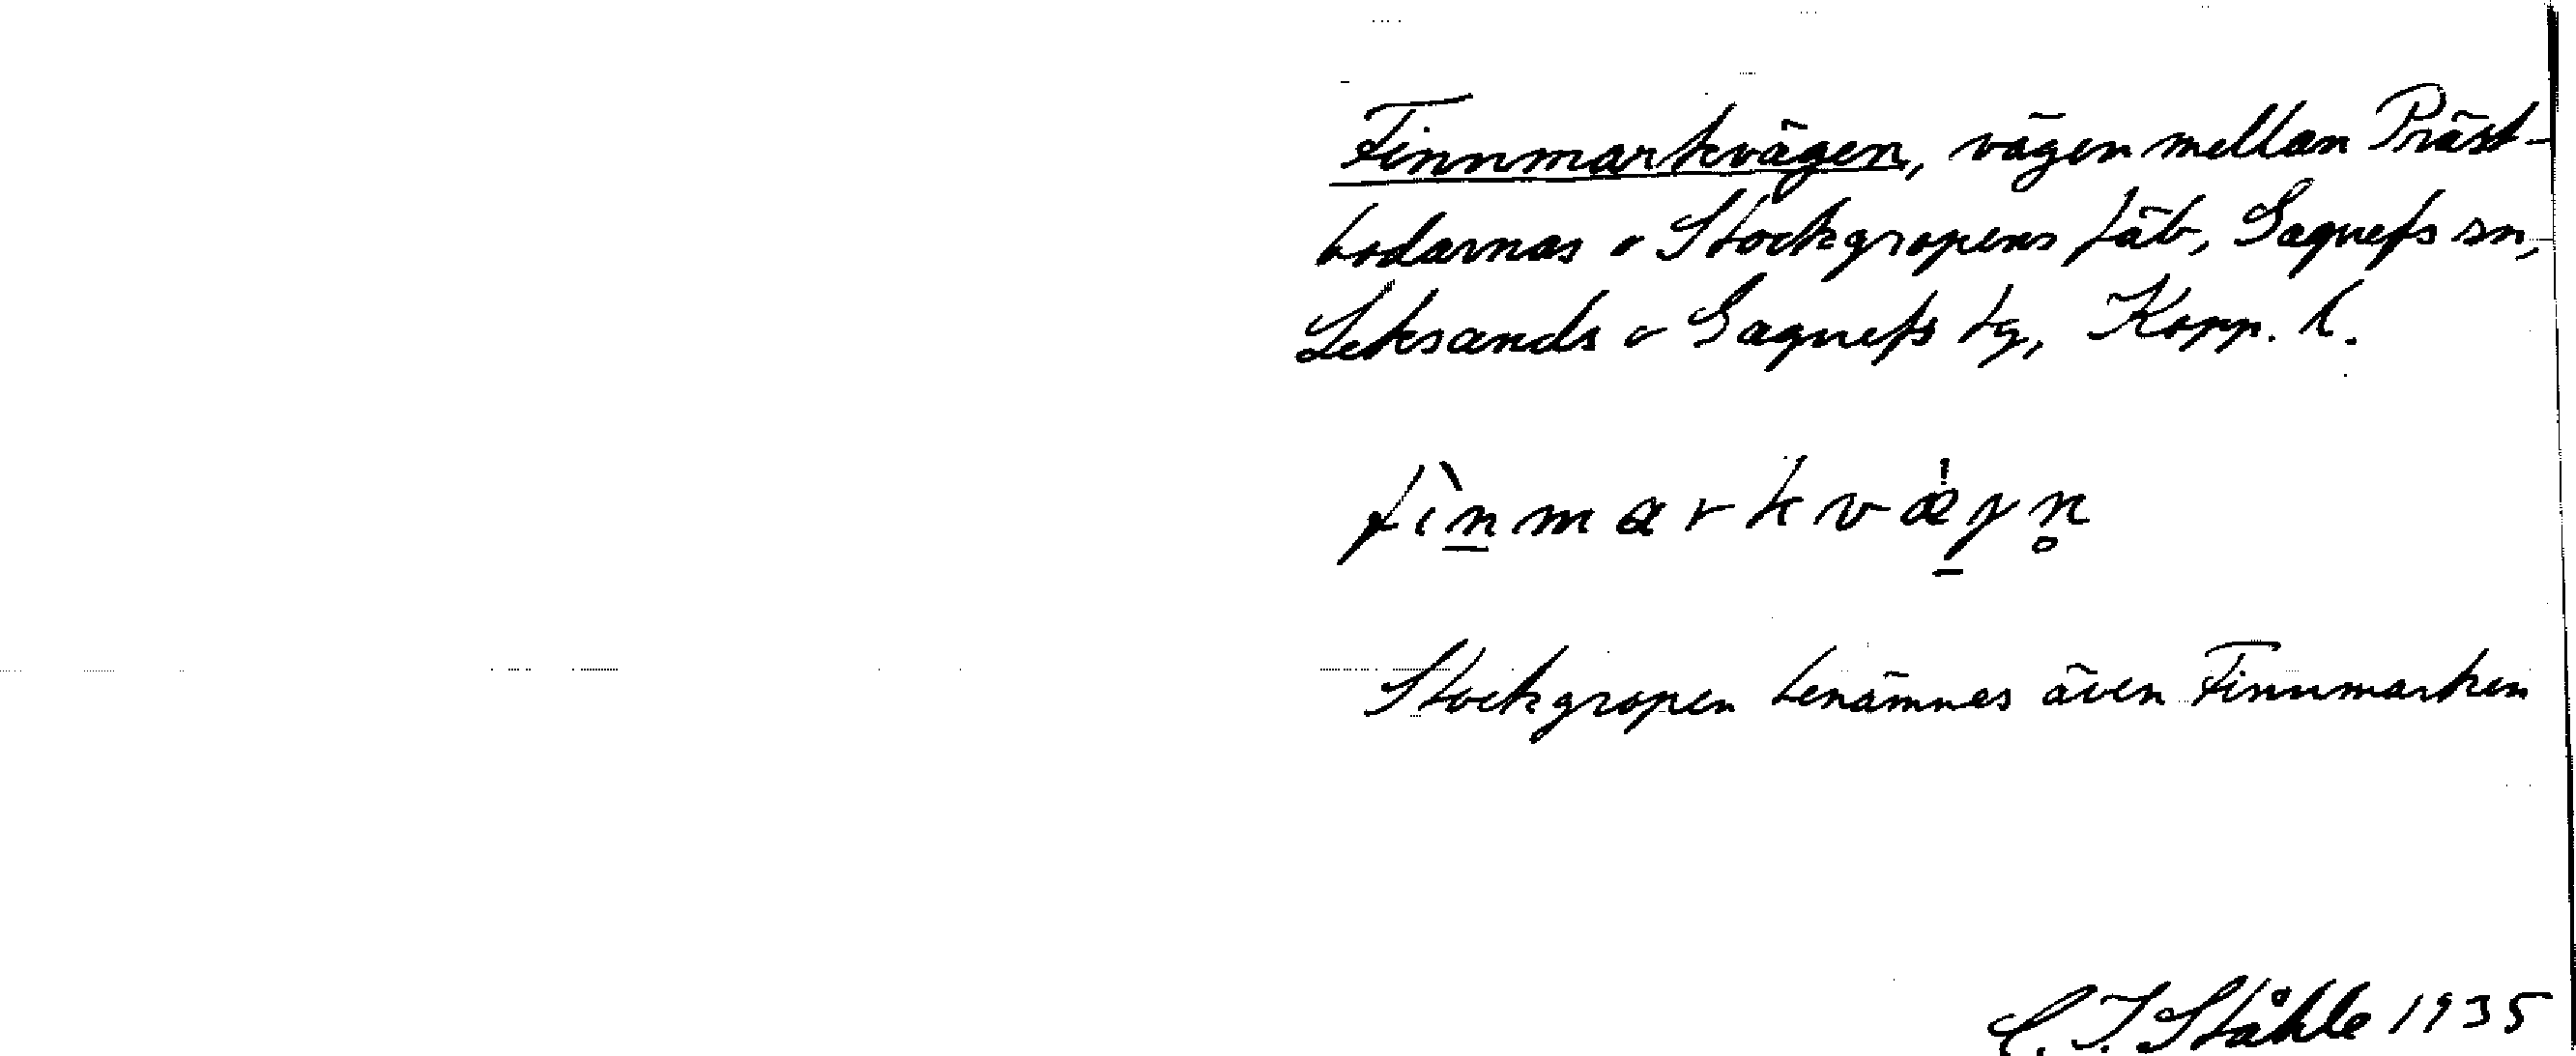 Finnmarkvägen, vägen mellan Präst-
bodarnas o Stockgropens fäb, Gagnefs sn,
Leksands o Gagnefs tg, Kopp. l.
fìn̲markvæ̍g̲n̥
Stockgropen benämnes även Finnmarken
C. I. Ståhle 1935